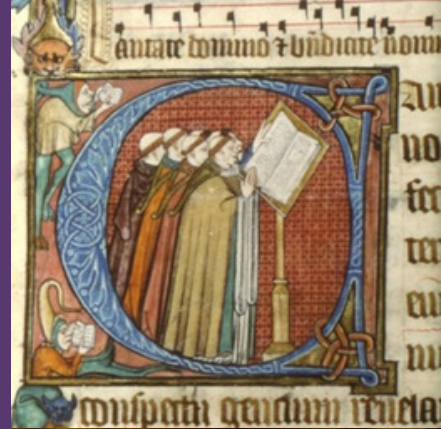 antate domino ⁊ bn̄dicite nom
CAN
uo
fec
ter
eiu
conspectu gencium reuela